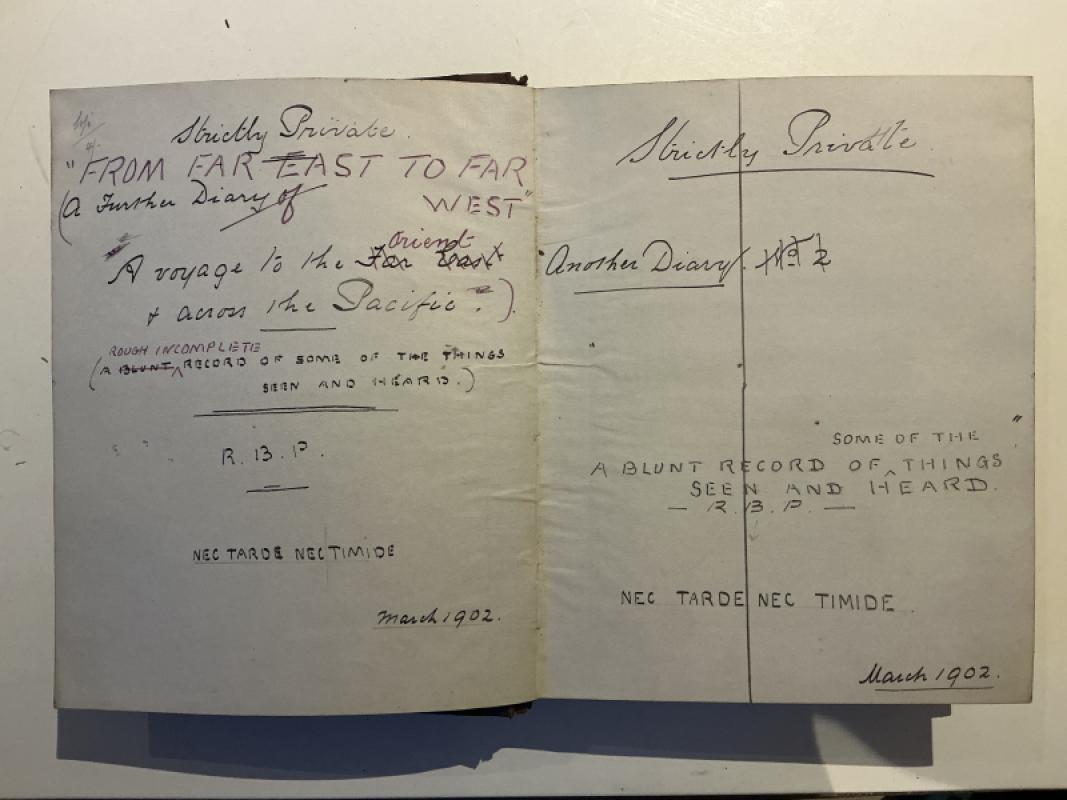 Strictly Private.
"FROM FAR EAST TO FAR
WEST"
(A Further Diary of
Orient
A voyage to the Far East
& across the Pacific.").
ROUGH INCOMPLETE
(A BLUNT RECORD OF SOME OF THE THINGS
SEEN AND HEARD.)
R.B.P.
NEC TARDE NEC TIMIDE
March 1902.
Strictly Private.
Another Diary.
SOME OF THE
A BLUNT RECORD OF THINGS
SEEN AND HEARD.
— R.B.P. —
NEC TARDE NEC TIMIDE.
March 1902.